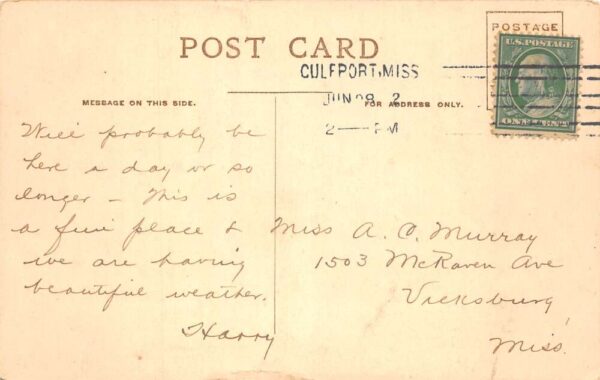 POSTAGE
U.S. POSTAGE
POST CARD
GULFPORT, MISS
2 — PM
MESSAGE ON THIS SIDE.
FOR ADDRESS ONLY.
Will probably be
here a day or so
longer – This is
a fine place &
we are having
beautiful weather.
Harry
Miss A. C. Murray
1503 McRaven Ave
Vicksburg,
Miss.